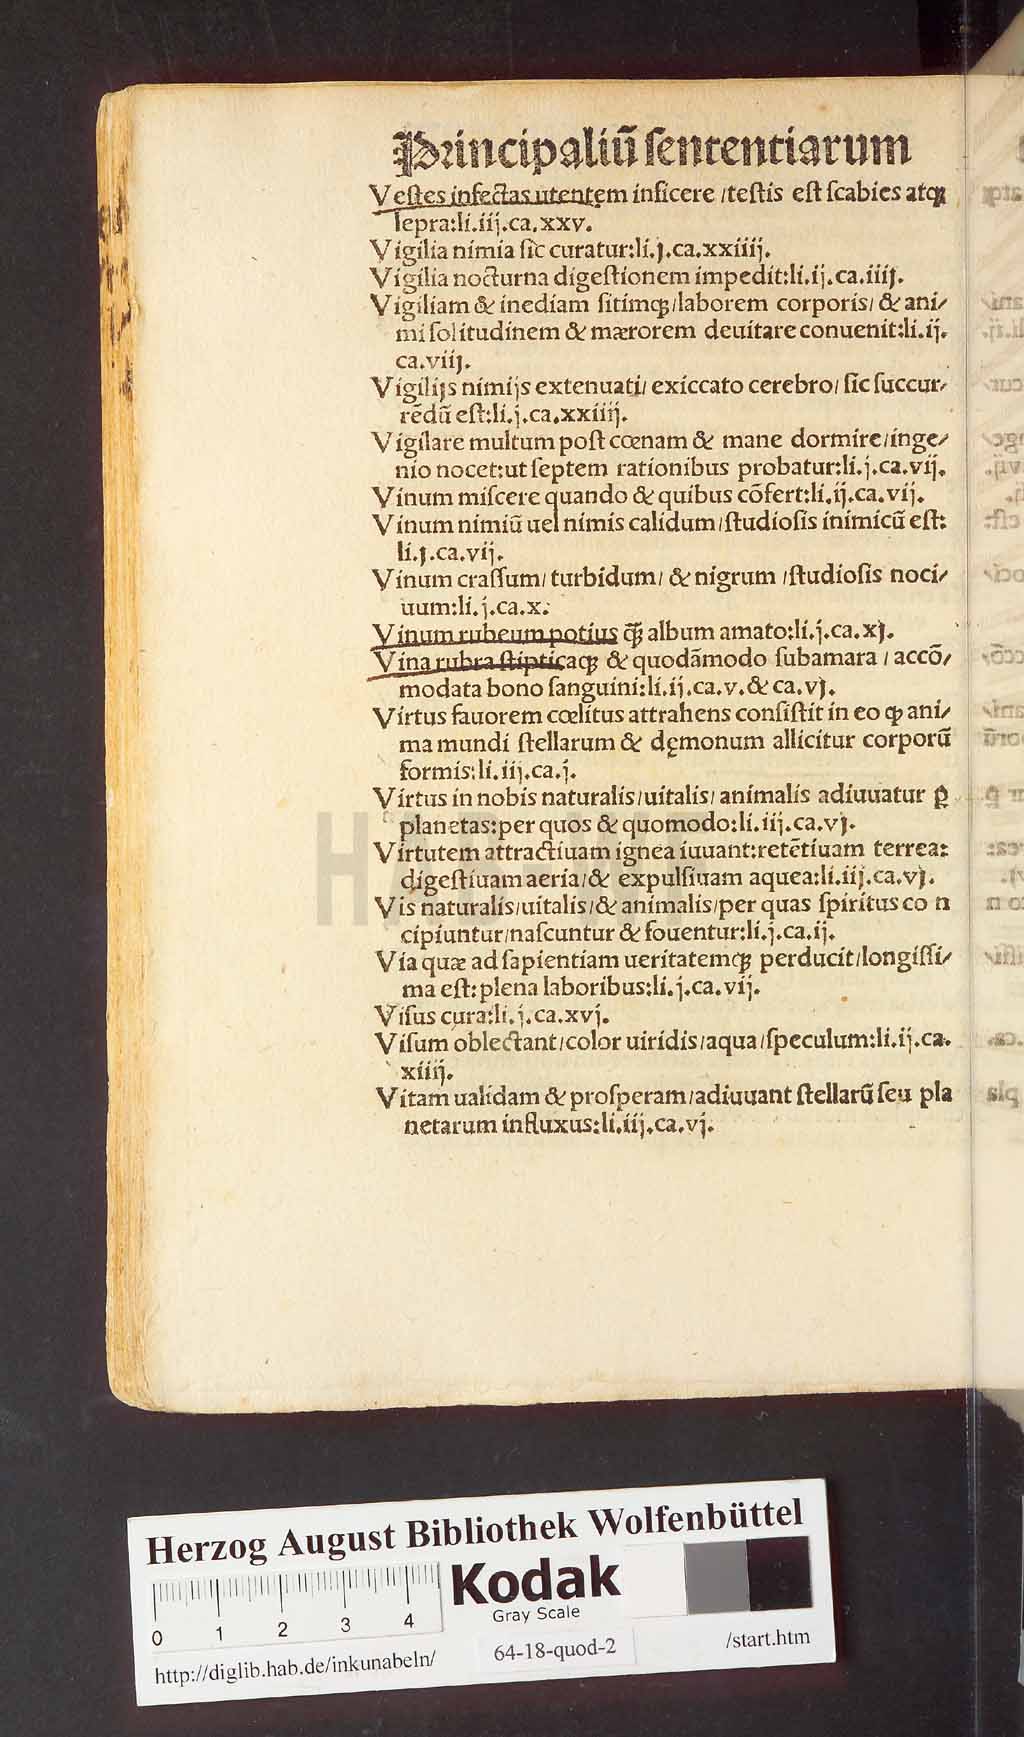 Principaliũ ſententiarum
Veſtes infectas utentem inficere/teſtis eſt ſcabies atqꝫ
lepra:li.iij.ca.xxv.
Vigilia nimia ſic curatur:li.j.ca.xxiiij.
Vigilia nocturna digeſtionem impedit:li.ij.ca.iiij.
Vigiliam & inediam ſitimqꝫ/laborem corporis/ & ani/
mi ſolitudinem & mærorem deuitare conuenit:li.ij.
ca.viij.
Vigilijs nimijs extenuati/ exiccato cerebro/ ſic ſuccur/
rẽdũ eſt:li.j.ca.xxiiij.
Vigilare multum poſt cœnam & mane dormire/inge/
nio nocet:ut ſeptem rationibus probatur:li.j.ca.vij.
Vinum miſcere quando & quibus cõfert:li.ij.ca.vij.
Vinum nimiũ uel nimis calidum/ſtudioſis inimicũ eſt:
li.j.ca.vij.
Vinum craſſum/ turbidum/ & nigrum /ſtudioſis noci/
uum:li.j.ca.x.
Vinum rubeum potius q̃ꝫ album amato:li.j.ca.xj.
Vina rubra ſtipticaqꝫ & quodãmodo ſubamara / accõ/
modata bono ſanguini:li.ij.ca.v.& ca.vj.
Virtus fauorem cœlitus attrahens conſiſtit in eo ꝙ ani/
ma mundi ſtellarum & dęmonum allicitur corporũ
formis:li.iij.ca.j.
Virtus in nobis naturalis/uitalis/ animalis adiuuatur ꝑ
planetas:per quos & quomodo:li.iij.ca.vj.
Virtutem attractiuam ignea iuuant:retẽtiuam terrea:
digeſtiuam aeria/& expulſiuam aquea:li.iij.ca.vj.
Vis naturalis/uitalis/& animalis/per quas ſpiritus co n
cipiuntur/naſcuntur & fouentur:li.j.ca.ij.
Via quæ ad ſapientiam ueritatemqꝫ perducit/longiſſi/
ma eſt:plena laboribus:li.j.ca.vij.
Viſus cura:li.j.ca.xvj.
Viſum oblectant/color uiridis/aqua/ſpeculum:li.ij.ca.
xiiij.
Vitam ualidam & proſperam/adiuuant ſtellarũ ſeu pla
netarum influxus:li.iij.ca.vj.
HAB
Herzog August Bibliothek Wolfenbüttel
Kodak
Gray Scale
0 1 2 3 4
http://diglib.hab.de/inkunabeln/ 64-18-quod-2 /start.htm